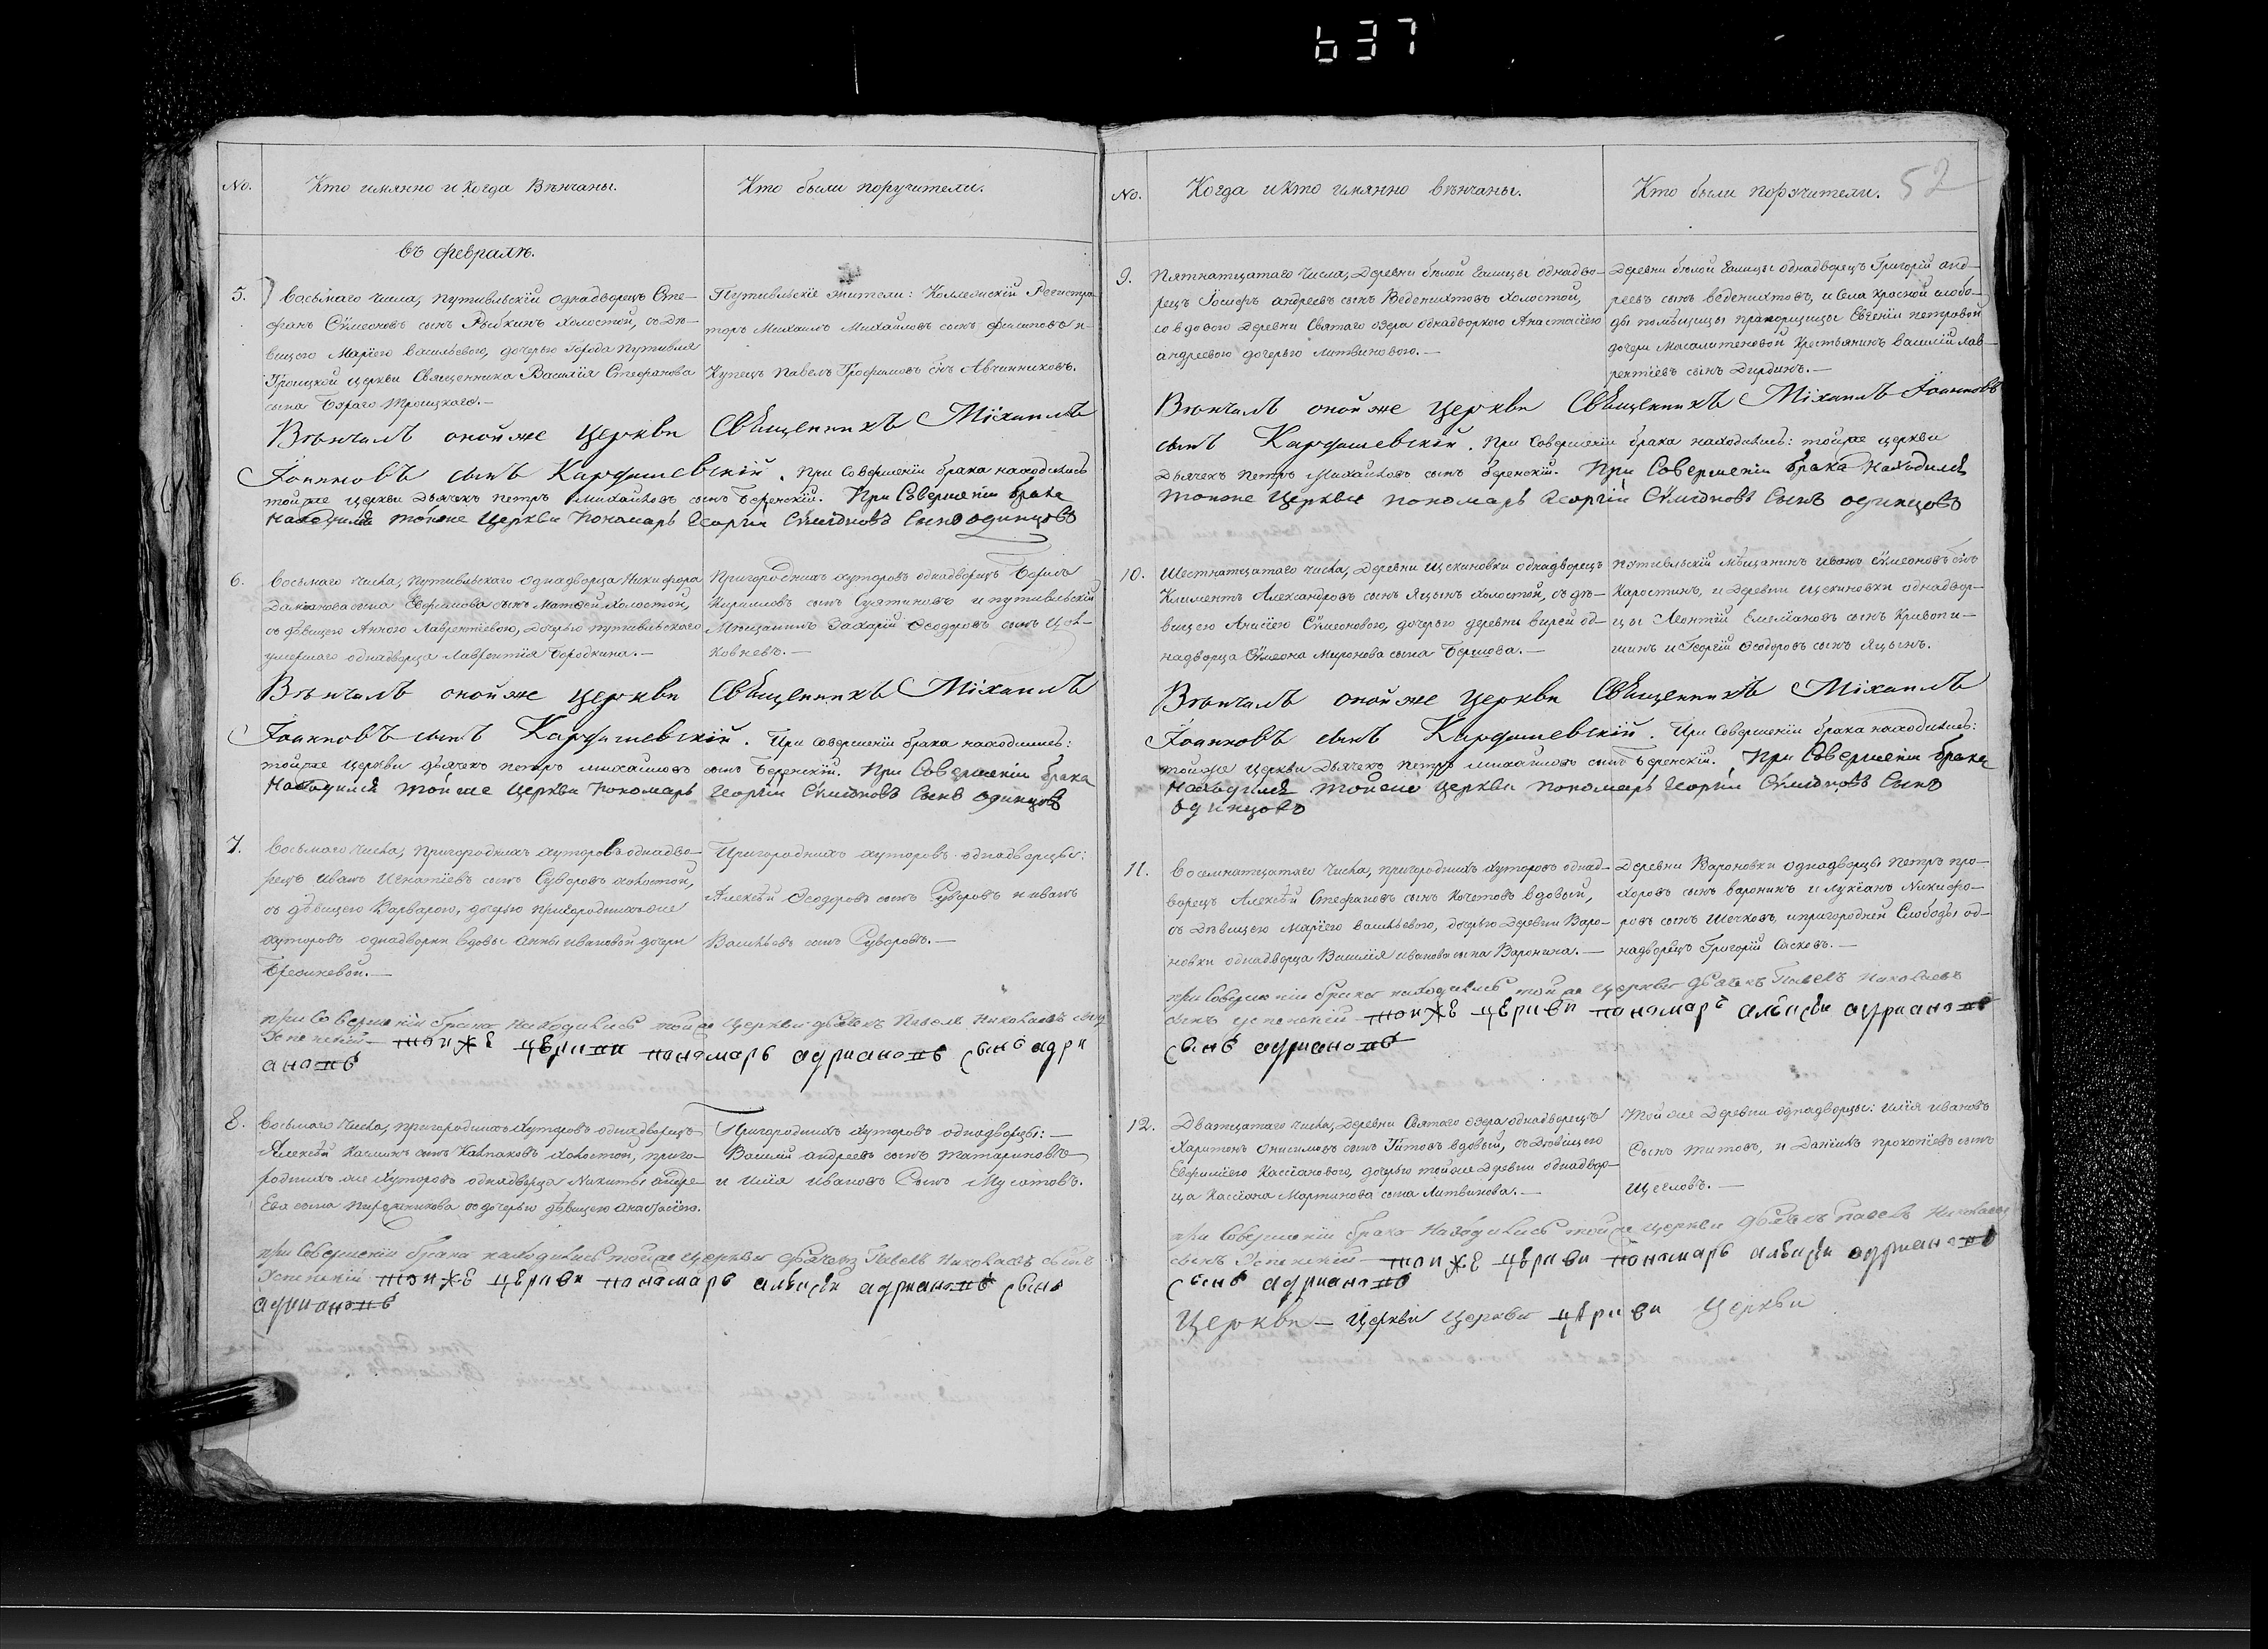 637
No. Кто имянно и когда Вѣнчаны. Кто были поручители.
въ февралѣ.
5. Восьмаго числа, путивльскій однадворецъ Сте-
фанъ Сѵмеоновъ сынъ Рыбкинъ холостой, съ дѣ-
вицею Маріею васильевою, дочерью города путивля
Троицкой церкви Священника Василія Стефанова
сына Троицкаго.—
Путивльскіе жители: Коллежскій Регистра-
торъ Михаилъ Михайловъ сынъ филиповъ и
Купецъ Павелъ Трофимовъ сынъ Авчинниковъ.
Вѣнчалъ оной же церкви Священникъ Міхаилъ
Іоанновъ сынъ Кардашевскій. При Совершеніи брака находились
той же церкви дьячекъ петръ Михайловъ сынъ Беренскій. При Совершеніи брака
находился тойже Церкви Пономарь Георгій Сѵмеоновъ Сынъ одинцовъ
6. Восьмаго числа, путивльскаго однадворца Никифора
сына Матвей холостой,
съ дѣвицею Анною Лаврентіевою, дочерью путивльскаго
умершаго однадворца Лаврентія Бородкина.—
Пригородныхъ хуторовъ однадворецъ Борисъ
Кирилловъ сынъ и путивльскій
Мѣщанинъ Захарій Ѳеодоровъ сынъ Цѣл-
ковневъ.—
Вѣнчалъ оной же церкви Священникъ Міхаилъ
Іоанновъ сынъ Кардашевскій. При совершеніи брака находились:
той же церкви дьячекъ петръ михайловъ сынъ Беренскій. При Совершеніи брака
Находился той же Церкви Пономарь Георгій Сѵмеоновъ Сынъ одинцовъ
7. Восьмаго числа, пригородныхъ хуторовъ однадво-
рецъ иванъ Игнатіевъ сынъ Суворовъ холостой,
съ дѣвицею Варварою, дочерью пригородныхъ же
хуторовъ однадворки вдовы анны ивановой дочери
Пригородныхъ хуторовъ однадворцы:
Алексѣй Ѳеодоровъ сынъ Суворовъ и иванъ
Васильевъ сынъ Суворовъ.—
при Совершеніи брака находились той же Церкви дьячекъ Павелъ Николаевъ сынъ
Успенскій тойже церкви понамарь адриановъ сынъ адри
ановъ
8. Восьмаго числа, пригородныхъ хуторовъ однадворецъ
Алексѣй сынъ Калпаковъ холостой, приго-
родныхъ же хуторовъ однадворца Никиты андре-
ева сына съ дочерью дѣвицею анастасіею.
Пригородныхъ хуторовъ однадворцы:—
Василій андреевъ сынъ татариновъ
и илія ивановъ Сынъ Мусатовъ.
при Совершеніи брака находились той же церкви дьячекъ Павелъ Николаевъ сынъ
Успенскій тойже церкви понамарь алѣксѣи адриановъ сынъ
адриановъ
52
No. Когда и кто имянно вѣнчаны. Кто были поручители.
9. Пятнатцатаго числа, деревни бѣлой Галицы однадво-
рецъ Іосифъ андреевъ сынъ Веденихтовъ холостой,
со вдовою деревни Святаго озера однадворкою Анастасіею
андреевою дочерью литвиновою.—
Деревни бѣлой Галицы однадворецъ Григорій анд-
реевъ сынъ веденихтовъ, и Села красной слобо-
ды помѣщицы прапорщицы Евгеніи петровой
дочери крестьянинъ василій лав-
рентіевъ сынъ Дирдинъ.—
Вѣнчалъ оной же церкви Священникъ Міхаилъ Іоанновъ
сынъ Кардашевскій. При Совершеніи брака находились: той же церкви
Дьячекъ Петръ Михайловъ сынъ беренскій. При Совершеніи брака находился
тоиже Церкви пономарь Георгій Сѵмеоновъ Сынъ одинцовъ
10. Шестнатцатаго числа, деревни Щекиновки однадворецъ
Климентъ Александровъ сынъ Яцынъ холостой, съ дѣ-
вицею Анисіею Сѵмеоновою, дочерью деревни вирей од-
надворца Сѵмеона Миронова сына Бершова.—
путивльскій мѣщанинъ иванъ Сѵмеоновъ сынъ
Каростинъ, и деревни щекиновки однадвор-
цы Леонтій Емельяновъ сынъ Кривопи-
шинъ и Георгій Ѳеодоровъ сынъ Яцынъ.
Вѣнчалъ оной же церкви Священникъ Міхаилъ
Іоанновъ сынъ Кардашевскій. При Совершеніи брака находились:
той же церкви дьячекъ петръ михайловъ сынъ Беренскій. При Совершеніи брака
находился тойже Церкви пономарь Георгій Сѵмеоновъ Сынъ
одинцовъ
11. Восемнатцатаго числа, пригородныхъ хуторовъ однад-
ворецъ Алексѣй Стефановъ сынъ Кочетовъ вдовый,
съ дѣвицею маріею васильевою, дочерью деревни Варо-
новки однадворца Василія иванова сына Воронина.—
деревни Вароновки однадворцы петръ про-
хоровъ сынъ воронинъ и лукіанъ Никифо-
ровъ сынъ Шечковъ, и пригородней Слободы од-
надворецъ Григорій Сясковъ.—
при Совершеніи брака находились той же церкви дьячекъ Павелъ Николаевъ
сынъ успенскій тоиже церкви понамарь алѣксѣи адриановъ
сынъ адриановъ
12. Дватцатаго числа, деревни Святаго озера однадворецъ
Харитонъ Онисимовъ сынъ Титовъ вдовый, съ дѣвицею
Евфиміею Кассіановою, дочерью той же деревни однадвор-
ца Кассіана Мартинова сына Литвинова.—
Той же деревни однадворцы: илія ивановъ
Сынъ титовъ, и Даніилъ прокопіевъ сынъ
Щегловъ.—
при Совершеніи брака находились той же церкви дьячекъ Павелъ Николаевъ
сынъ Успенскій тоиже церкви понамарь алѣксѣи адриановъ
сынъ адриановъ
Церкви — Церкви Церкви церкви Церкви